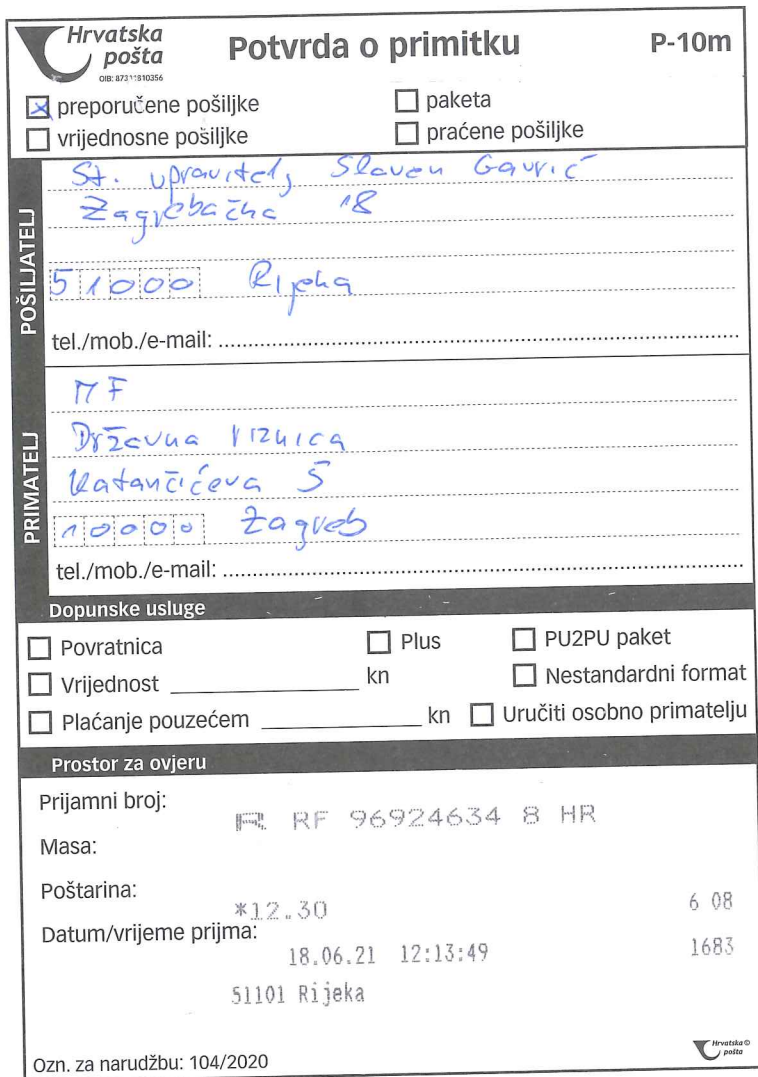 Hrvatska pošta
Potvrda o primitku
P-10m
preporučene pošiljke
paketa
vrijednosne pošiljke
praćene pošiljke
POŠILJATELJ
St. upravitelj Slaven Gavrić
Zagrebačka 18
51000 Rijeka
tel./mob./e-mail:
PRIMATELJ
MF
Državna riznica
Katančićeva 5
10000 Zagreb
tel./mob./e-mail:
Dopunske usluge
Povratnica
Plus
PU2PU paket
Vrijednost kn
Nestandardni format
Plaćanje pouzećem kn
Uručiti osobno primatelju
Prostor za ovjeru
Prijamni broj:
R RF 96924634 8 HR
Masa:
Poštarina:
*12.30
6 08
Datum/vrijeme prijma:
18.06.21 12:13:49
1683
51101 Rijeka
Ozn. za narudžbu: 104/2020
Hrvatska pošta